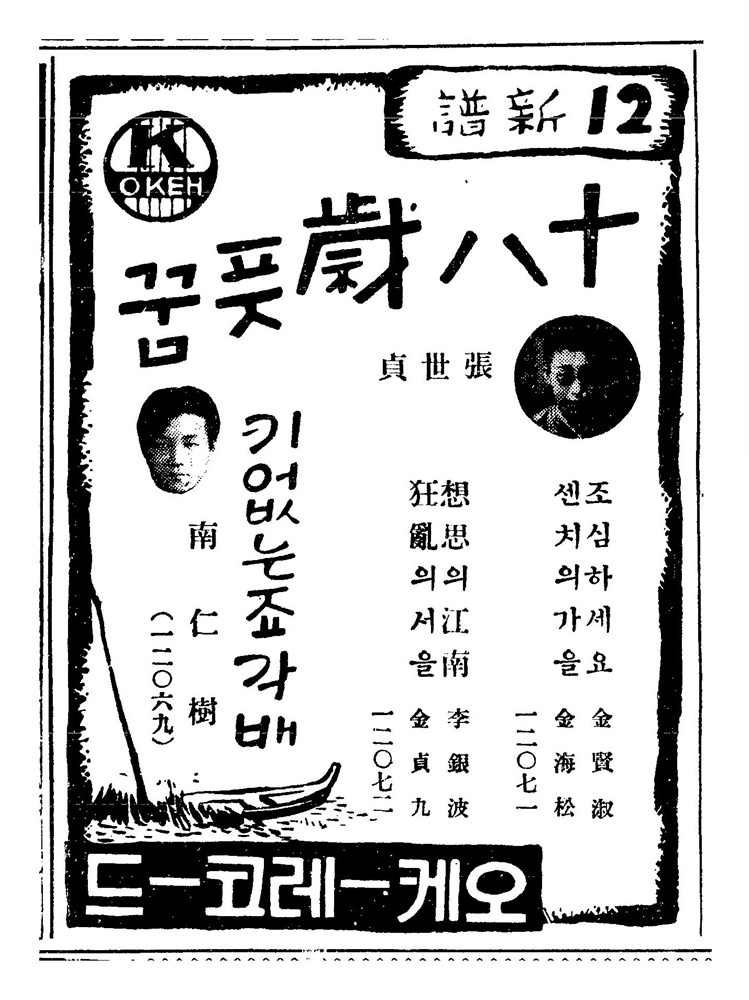 12 新譜
K
OKEH
十八歲풋꿈
張世貞
조심하세요 金賢淑
센치의가을 金海松
一二〇七一
想思의江南 李銀波
狂亂의서을 金貞九
一二〇七二
키없는죠각배
南仁樹
(一二〇六九)
오케ー레코ー드